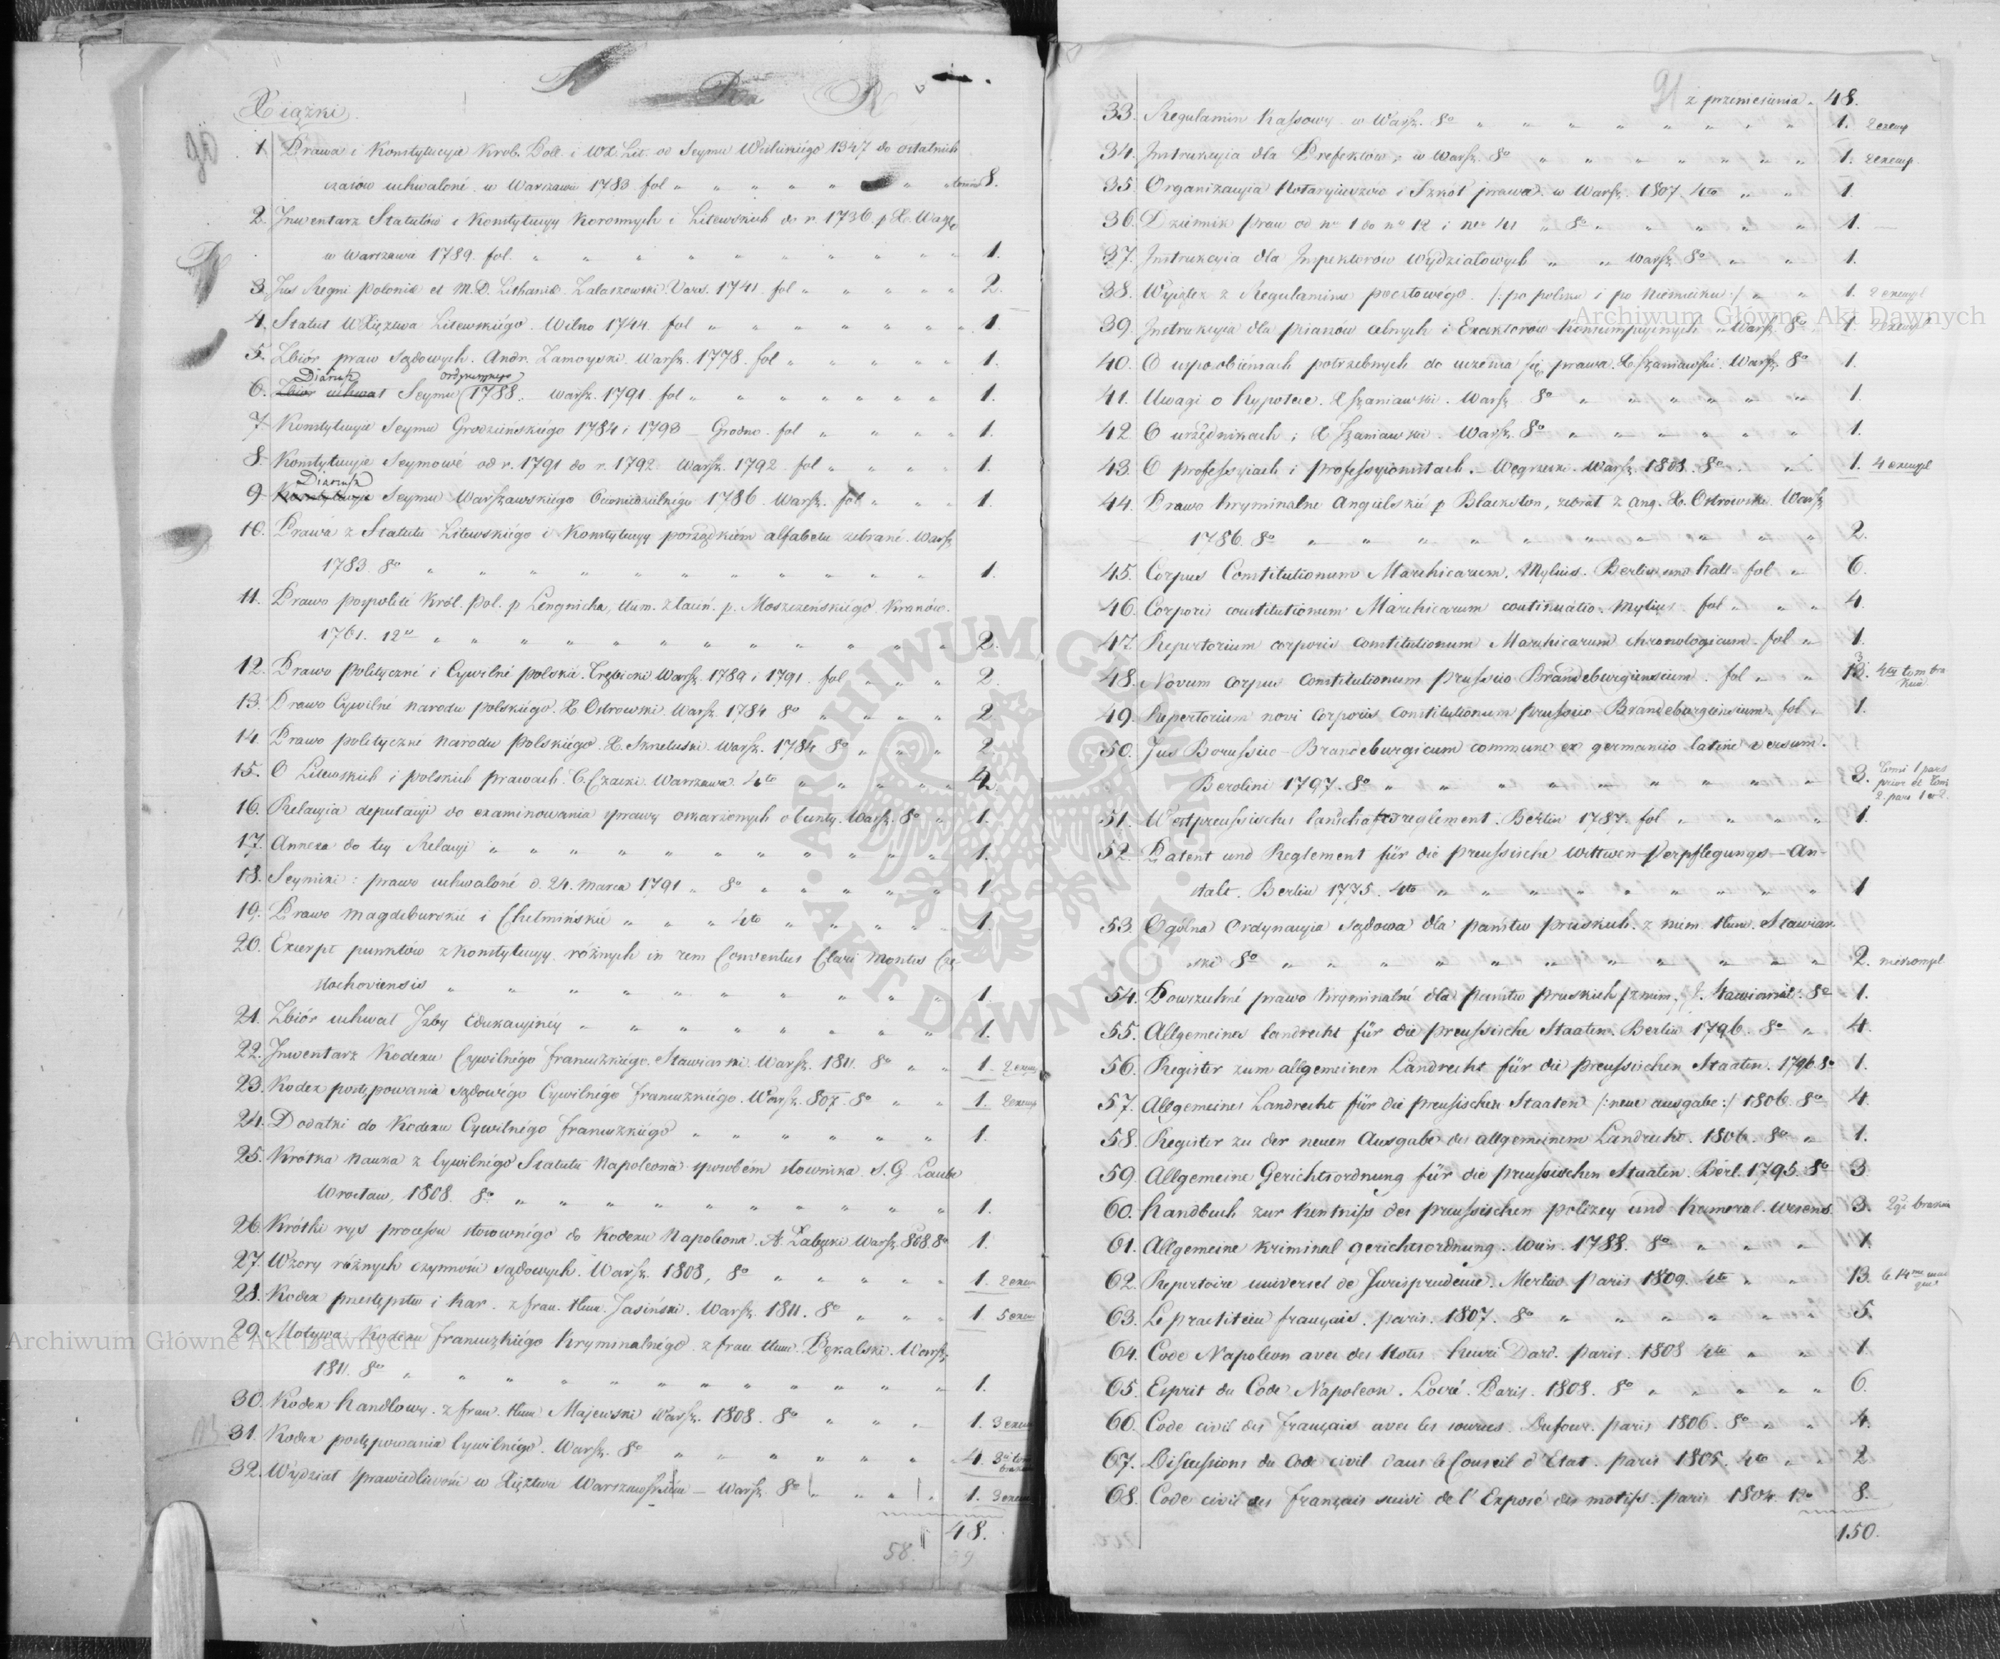 Xiążki.
1. Prawa i Konstytucyie Król. Pol. i W.X. Lit. od Seymu Wiślickiégo 1347 do ostatnich
czasów uchwaloné. w Warszawie 1783 fol " " " " " tomów 8.
2. Inwentarz Statutów i Konstytucyy Koronnych i Litewskich do r. 1736. p. X. Wagę
w Warszawie 1789. fol. " " " " " " " " 1.
3. Jus Regni Poloniæ et M.D. Lithaniæ Zalaszowski Vars. 1741. fol " " " " 2.
4. Statut W Xięztwa Litewskiégo. Wilno 1744. fol " " " " " " 1.
5. Zbiór praw sądowych. Andr. Zamoyski. Warsz. 1778. fol " " " " 1.
Diariusz ordynaryinego
6. Zbiór uchwał Seymu 1788. Warsz. 1791. fol " " " " " " 1.
7. Konstytucyie Seymu Grodzińskiégo 1784 i 1793 — Grodno. fol " " " " 1.
8. Konstytucyie Seymowé od r. 1791 do r. 1792. Warsz. 1792. fol " " " " 1.
Diariusz
9. Konstytucyie Seymu Warszawskiégo 1786. Warsz. fol " " " 1.
10. Prawa z Statutu Litewskiégo i Konstytucyy porządkiém alfabetu zebrané. Warsz.
1783. 8o " " " " " " " " " " 1.
11. Prawo pospolité Król. Pol. p. Lengnicha, tłum. z łaciń. p. Moszczeńskiégo. Kraków.
1761. 12o " " " " " " " " " " 2.
12. Prawo Polityczné i Cywilné polskié. Trębicki Warsz. 1789 i 1791. fol " " " 2.
13. Prawo Cywilné narodu polskiégo. X. Ostrowski. Warsz. 1784 8o " " " 2.
14. Prawo polityczné narodu Polskiégo. X. Skrzetuski. Warsz. 1784. 8o " " " 2.
15. O Litewskich i polskich prawach. T. Czacki. Warszawa. 4to " " " " 2.
16. Relacyia deputacyi do examinowania sprawy oskarżonych o bunty. Warsz. 8o " 1.
17. Annexa do tey Relacyi " " " " " " " " 1.
18. Seymiki: prawo uchwaloné d. 24. Marca 1791 " 8o " " " " 1.
19. Prawo magdeburskié i Chełmińskié " " " 4to " " " " 1.
20. Excerpt punktów z konstytucyy różnych in rem Conventus Clari Montis Czę
stochoviensis " " " " " " " " " 1.
21. Zbiór uchwał Izby Edukacyiney " " " " " " " 1.
22. Inwentarz Kodexu Cywilnégo francuzkiégo. Stawiarski. Warsz. 1811. 8o " " 1. 2 exemp
23. Kodex postępowania sądowégo Cywilnégo francuzkiégo. Warsz. 807. 8o " " 1. 2 exemp
24. Dodatki do Kodexu Cywilnégo francuzkiégo " " " " " " 1.
25. Krótka nauka z Cywilnégo Statutu Napoleona sposobém słownika. S. G. Laube
Wrocław, 1808. 8o " " " " " " " " " 1.
26. Krótki rys processu stosownégo do Kodexu Napoleona. A. Łabęcki Warsz. 808. 8o 1.
27. Wzory różnych czynności sądowych. Warsz. 1808, 8o " " " " " 1. 2 exem
28. Kodex przestępstw i kar. z fran. tłum. Jasiński. Warsz. 1811. 8o " " " 1. 5 exem
29. Motywa Kodexu francuzkiégo Kryminalnégo. z fran. tłum. Bękalski. Warsz.
1811. 8o " " " " " " " " " 1.
30. Kodex handlowy. z fran. tłum Majewski Warsz. 1808. 8o " " " 1. 3 exem
31. Kodex postępowania Cywilnégo. Warsz. 8o " " " " " 4.
32. Wydział Sprawiedliwości w Xięztwie Warszawskiém — Warsz. 8o " " " 1. 3 exem
48.
58.
91
z przeniesienia. 48.
33. Regulamin Kassowy. w Warsz. 8o " " " " " " 1. 2 exemp
34. Instrukcyia dla Prefektów. w Warsz. 8o " " " " " 1. 2 exemp.
35. Organizacyia Notaryuszów i Szkół prawa. w Warsz. 1807. 4to " " 1.
36. Dziennik praw od no 1 do no 12 i no 41 " 8o " " " " 1.
37. Instrukcyia dla Inspektorów Wydziałowych " " Warsz. 8o " " 1.
38. Wyiątek z Regulaminu pocztowégo. /: po polsku i po niemiecku :/ " " 1. 2 exempl
39. Instrukcyia dla pisarzów celnych i Exaktorów Konsumpcyinych. Warsz. 8o " 1. 2 exempl
40. O usposobieniach potrzebnych do uczenia się prawa. X. Szaniawski. Warsz. 8o 1.
41. Uwagi o hypotece. X. Szaniawski. Warsz. 8o " " " " " 1.
42. O urzędnikach; X. Szaniawski. Warsz. 8o " " " " " 1.
43. O professyiach i professyonistach. Węgrzecki. Warsz. 1808. 8o. " " 1. 4 exempl
44. Prawo kryminalne Angielskié p. Blackston, zebrał z ang. X. Ostrowski. Warsz.
1786. 8o " " " " " " " " " 2.
45. Corpus Constitutionum Marchicarum. Mylius. Berlin und Hall. fol " 6.
46. Corporis constitutionum Marchicarum continuatio. Mylius. fol " " 4.
47. Repertorium corporis constitutionum Marchicarum chronologicum. fol " 1.
48. Novum corpus constitutionum prussico Brandeburgiensium. fol " " 13. 4ty tom bra
kuie.
49. Repertorium novi Corporis constitutionum prussico Brandeburgensium. fol " 1.
50. Jus Borussico-Brandeburgicum commune ex germanico latine versum.
Berolini 1797. 8o " " " " " " " " 3. Tomi 1 pars
prior et Tomi
2. pars 1 et 2.
51. Westpreussisches landschaftsreglement. Berlin 1787. fol " " " " 1.
52. Patent und Reglement für die preussische Wittwen-Verpflegungs-An-
stalt. Berlin 1775. 4to " " " " " " " 1
53. Ogólna Ordynacyia sądowa dla państw pruskich. z niem. tłum. Stawiar-
ski 8o " " " " " " " " " 2. niekompl
54. Powszechné prawo kryminalné dla państw pruskich z niem. Stawiarski. 8o 1.
55. Allgemeines Landrecht für die preussische Staaten. Berlin 1796. 8o " 4.
56. Register zum allgemeinen Landrecht für die preussischen Staaten. 1796 8o 1.
57. Allgemeines Landrecht für die preusischen Staaten /: neue ausgabe :/ 1806. 8o 4.
58. Register zu der neuen Ausgabe des allgemeinem Landrecht. 1806. 8o " 1.
59. Allgemeine Gerichtsordnung für die preussischen Staaten. Berl. 1795. 8o 3.
60. Handbuch zur Kentniss des preussischen polizey und Kameral-wesens. 3. 2gi brakuie
61. Allgemeine kriminal gerichtsordnung. Wien. 1788. 8o " " " " 1.
62. Repertoire universel de Jurisprudence. Merlin Paris 1809. 4to " " 13. le 14me man
que.
63. Le practicien français. paris. 1807. 8o " " " " " " 5.
64. Code Napoleon avec des Notes. Henri Dard. paris. 1808 4to " " 1.
65. Esprit du Code Napoleon. Locré. Paris. 1808. 8o " " " " " 6.
66. Code civil des français avec les sources. Dufour. paris 1806. 8o " " 4.
67. Discussions du Code civil dans le Conseil d'Etat. paris 1805. 4to " " 2
68. Code civil des français suivi de l'Exposé des motifs. paris 1804. 12o 8.
150.
ARCHIWUM GŁÓWNE AKT DAWNYCH
Archiwum Główne Akt Dawnych
Archiwum Główne Akt Dawnych